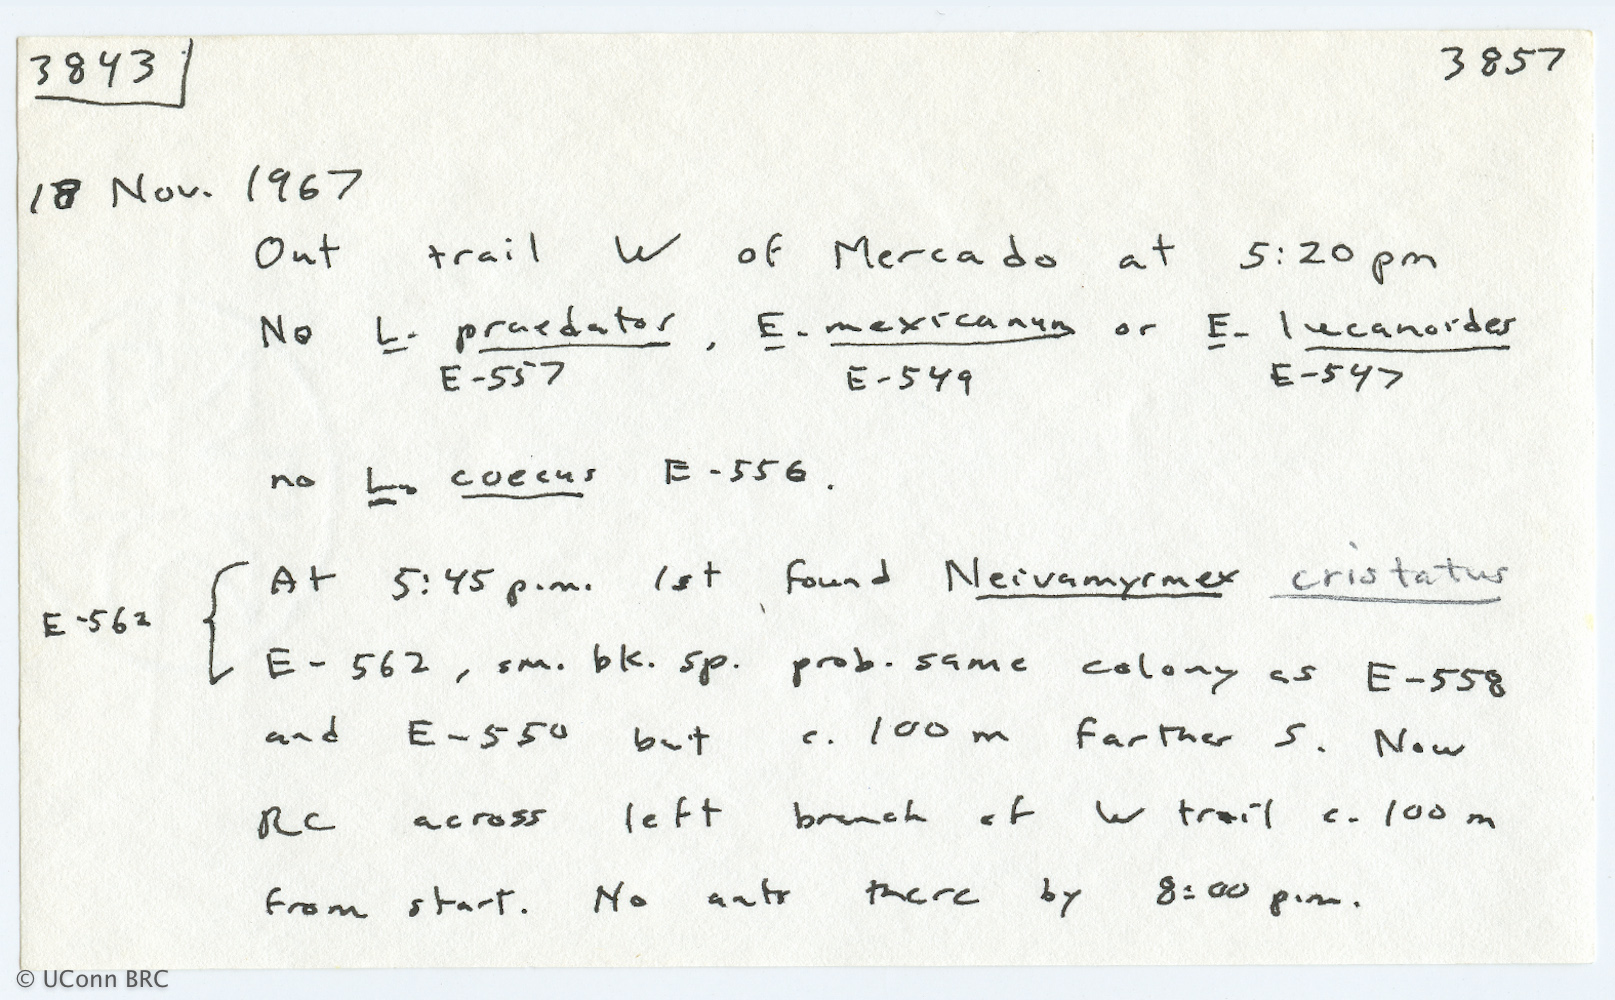 3843 3857
18 Nov. 1967
Out trail W of Mercado at 5:20 pm
No L. praedator, E. mexicanum or E. lucanoides
E-557 E-549 E-547
no L. coecus E-556.
At 5:45 p.m. 1st found Neivamyrmex cristatus
E-562
E-562, sm. bk. sp. prob. same colony as E-558
and E-550 but c. 100 m farther S. Now
RC across left branch of W trail c. 100 m
from start. No ants there by 8:00 p.m.
© UConn BRC